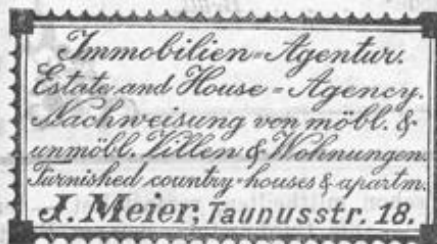 Immobilien-Agentur.
Estate and House-Agency.
Nachweisung von möbl. &
unmöbl. Villen & Wohnungen.
Furnished country-houses & apartm.
J. Meier, Taunusstr. 18.